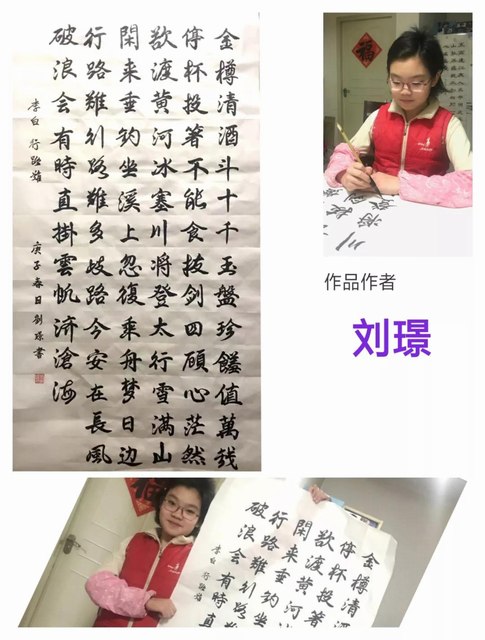 金樽清酒斗十千玉盤珍饈值萬錢
停杯投箸不能食拔劍四顧心茫然
欲渡黃河冰塞川將登太行雪滿山
閑来垂釣坐溪上忽復乘舟夢日边
行路難行路難多歧路今安在長風
破浪会有時直掛雲帆濟滄海
李白 行路難 庚子春日劉璟書
福
作品作者
刘璟
福
金樽清酒
停杯投
欲渡黃河
閑来垂釣
行路難行路
破浪会有時直
李白 行路難